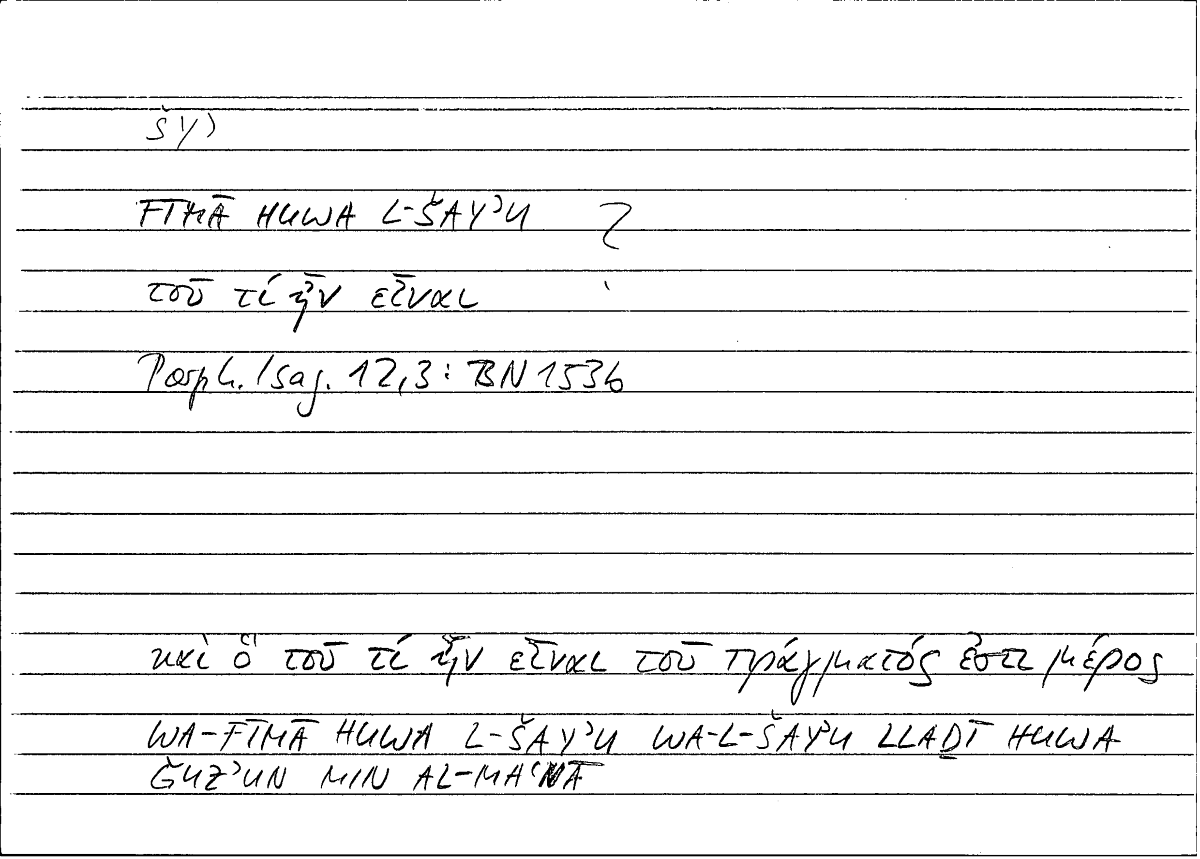 šyʾ
FĪMĀ HUWA L-ŠAYʾU ?
τοῦ τί ἦν εἶναι
Porph. Isag. 12,3 : BN 153b
καὶ ὃ τοῦ τί ἦν εἶναι τοῦ πράγματός ἐστι μέρος
WA-FĪMĀ HUWA L-ŠAYʾU WA-L-ŠAYʾU LLAḎĪ HUWA
ĞUZʾUN MIN AL-MAʿNĀ